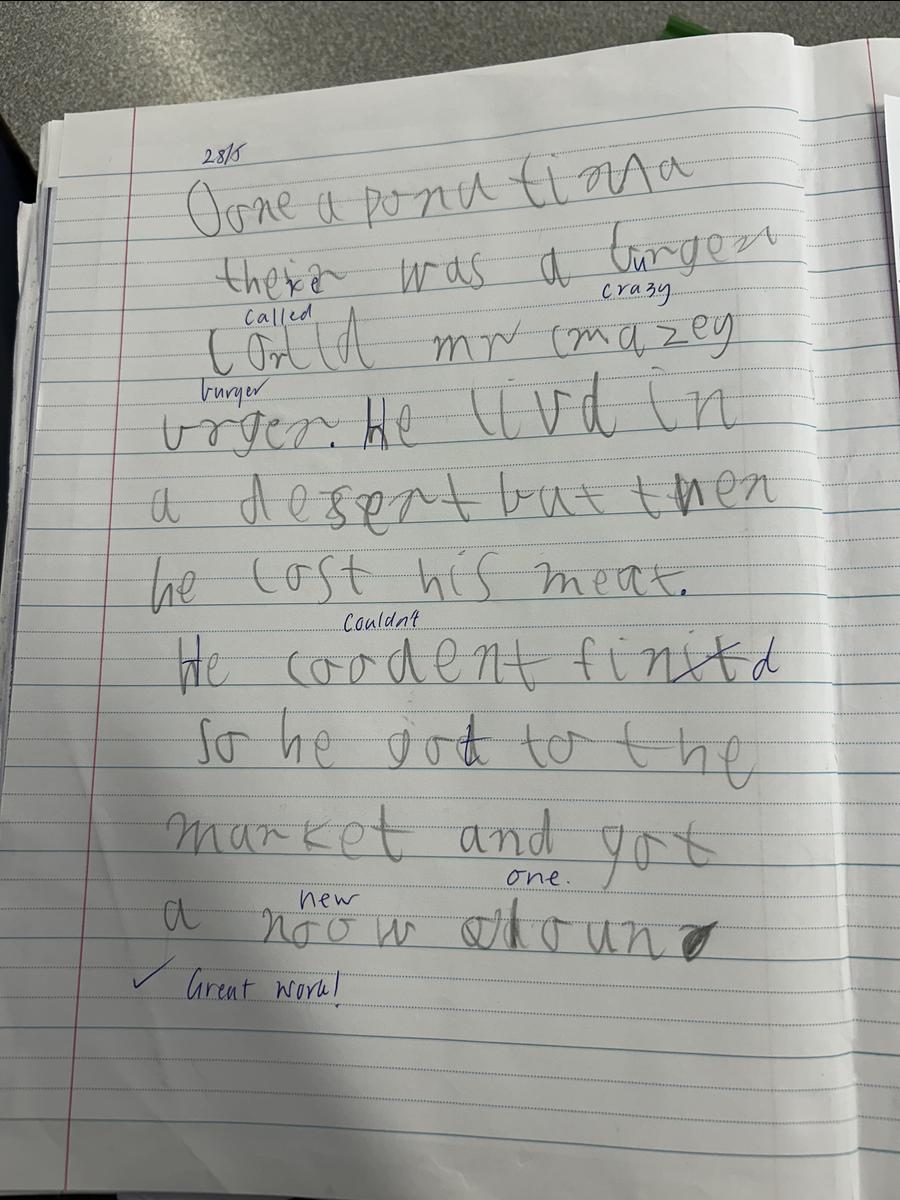 28/5
Oone a pona tima
there was a burger
called crazy
Corld mr crazey
burger
urger. He livd in
a desert but then
he lost his meat.
couldn't
He coodent find
so he got to the
market and got
one.
new
a noow oun
✓ Great work!